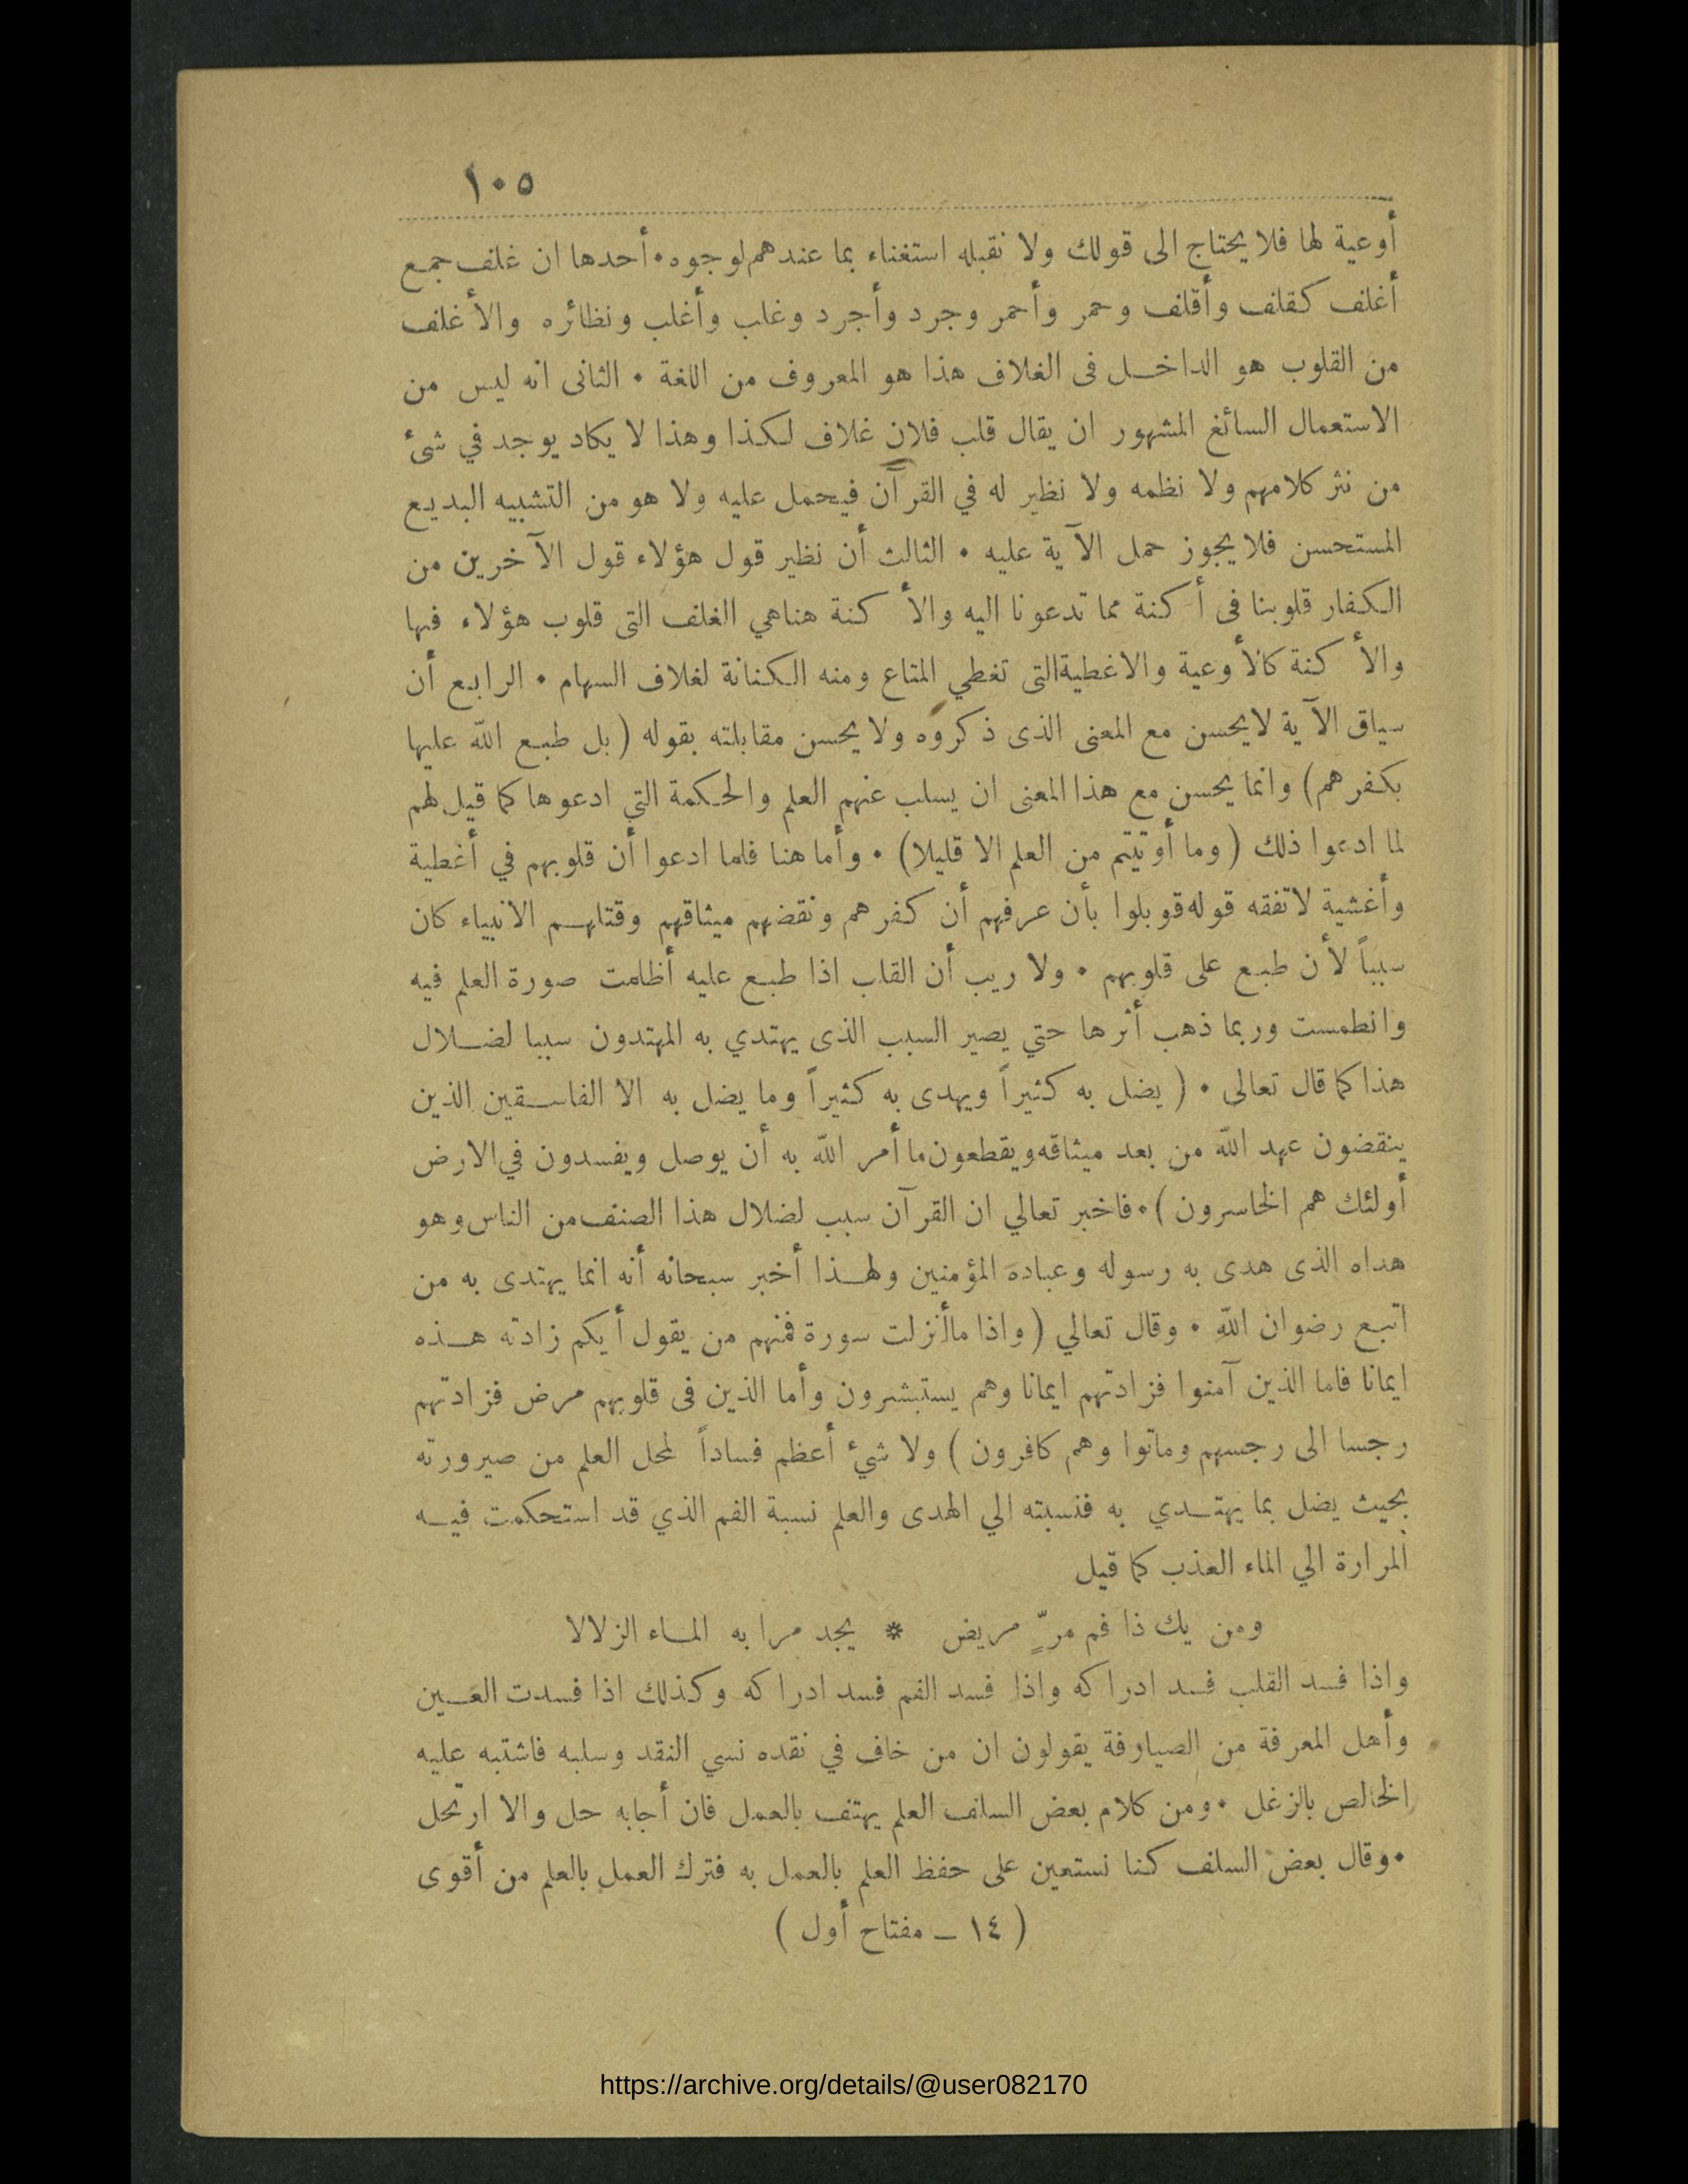 ١٠٥
أوعية لها فلا يحتاج الى قولك ولا نقبله استغناء بما عندهم لوجوه • أحدها ان غلف جمع
أغلف كقلف وأقلف وحمر وأحمر وجرد وأجرد وغلب وأغلب ونظائره والأغلف
من القلوب هو الداخل فى الغلاف هذا هو المعروف من اللغة • الثانى انه ليس من
الاستعمال السائغ المشهور ان يقال قلب فلان غلاف لكذا وهذا لا يكاد يوجد في شئ
من نثر كلامهم ولا نظمه ولا نظير له في القرآن فيحمل عليه ولا هو من التشبيه البديع
المستحسن فلا يجوز حمل الآية عليه • الثالث أن نظير قول هؤلاء قول الآخرين من
الكفار قلوبنا فى أكنة مما تدعونا اليه والأكنة هناهي الغلف التى قلوب هؤلاء فيها
والأكنة كالأوعية والاغطية التى تغطي المتاع ومنه الكنانة لغلاف السهام • الرابع أن
سياق الآية لايحسن مع المعنى الذى ذكروه ولا يحسن مقابلته بقوله (بل طبع الله عليها
بكفرهم) وانما يحسن مع هذا المعنى ان يسلب عنهم العلم والحكمة التي ادعوها كما قيل لهم
لما ادعوا ذلك (وما أوتيتم من العلم الا قليلا) • وأما هنا فلما ادعوا أن قلوبهم في أغطية
وأغشية لاتفقه قوله قوبلوا بأن عرفهم أن كفرهم ونقضهم ميثاقهم وقتلهم الانبياء كان
سبباً لأن طبع على قلوبهم • ولا ريب أن القلب اذا طبع عليه أظلمت صورة العلم فيه
وانطمست وربما ذهب أثرها حتي يصير السبب الذى يهتدي به المهتدون سببا لضلال
هذا كما قال تعالى • (يضل به كثيراً ويهدى به كثيراً وما يضل به الا الفاسقين الذين
ينقضون عهد الله من بعد ميثاقه ويقطعون ما أمر الله به أن يوصل ويفسدون في الارض
أولئك هم الخاسرون) • فاخبر تعالي ان القرآن سبب لضلال هذا الصنف من الناس وهو
هداه الذى هدى به رسوله وعباده المؤمنين ولهذا أخبر سبحانه أنه انما يهتدى به من
اتبع رضوان الله • وقال تعالي (واذا ما أنزلت سورة فمنهم من يقول أيكم زادته هذه
ايمانا فاما الذين آمنوا فزادتهم ايمانا وهم يستبشرون وأما الذين فى قلوبهم مرض فزادتهم
رجسا الى رجسهم وماتوا وهم كافرون) ولا شيء أعظم فساداً لمحل العلم من صيرورته
بحيث يضل بما يهتدي به فنسبته الي الهدى والعلم نسبة الفم الذي قد استحكمت فيه
المرارة الي الماء العذب كما قيل
ومن يك ذا فم مرٍّ مريض * يجد مرا به الماء الزلالا
واذا فسد القلب فسد ادراكه واذا فسد الفم فسد ادراكه وكذلك اذا فسدت العين
وأهل المعرفة من الصيارفة يقولون ان من خاف في نقده نسي النقد وسلبه فاشتبه عليه
الخالص بالزغل • ومن كلام بعض السلف العلم يهتف بالعمل فان أجابه حل والا ارتحل
• وقال بعض السلف كنا نستعين على حفظ العلم بالعمل به فترك العمل بالعلم من أقوى
(١٤ ــ مفتاح أول)
https://archive.org/details/@user082170